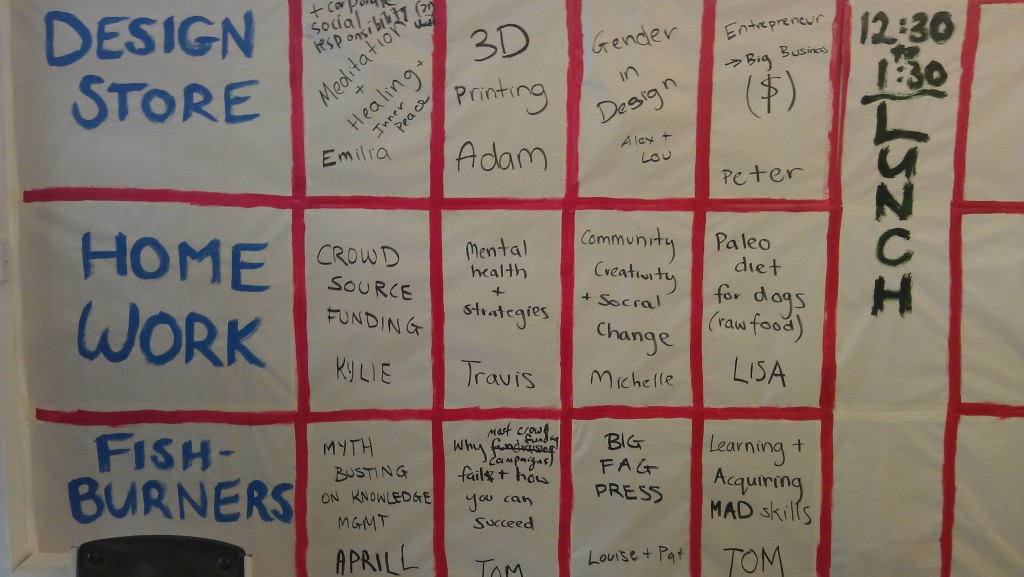 DESIGN
STORE
social
responsibility
Meditation
+
Healing +
Inner
Peace
Emilia
3D
Printing
Adam
Gender
in
Design
Alex +
Lou
Entrepreneur
→ Big Business
($)
Peter
12:30
TO
1:30
LUNCH
HOME
WORK
CROWD
SOURCE
FUNDING
KYLIE
Mental
health
+
strategies
Travis
Community
Creativity
+ Social
Change
Michelle
Paleo
diet
for dogs
(raw food)
LISA
FISH-
BURNERS
MYTH
BUSTING
ON KNOWLEDGE
MGMT
APRILL
most crowd
funding
Why fundraising
campaigns)
fails + how
you can
succeed
TOM
BIG
FAG
PRESS
Louise + Pat
Learning +
Acquiring
MAD skills
TOM